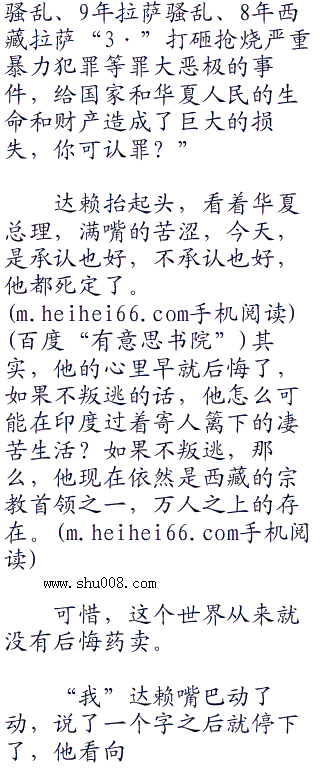 骚乱、9年拉萨骚乱、8年西
藏拉萨“3·”打砸抢烧严重
暴力犯罪等罪大恶极的事
件，给国家和华夏人民的生
命和财产造成了巨大的损
失，你可认罪？”
达赖抬起头，看着华夏
总理，满嘴的苦涩，今天，
是承认也好，不承认也好，
他都死定了。
(m.heihei66.com手机阅读)
(百度“有意思书院”)其
实，他的心里早就后悔了，
如果不叛逃的话，他怎么可
能在印度过着寄人篱下的凄
苦生活？如果不叛逃，那
么，他现在依然是西藏的宗
教首领之一，万人之上的存
在。(m.heihei66.com手机阅
读)
www.shu008.com
可惜，这个世界从来就
没有后悔药卖。
“我”达赖嘴巴动了
动，说了一个字之后就停下
了，他看向